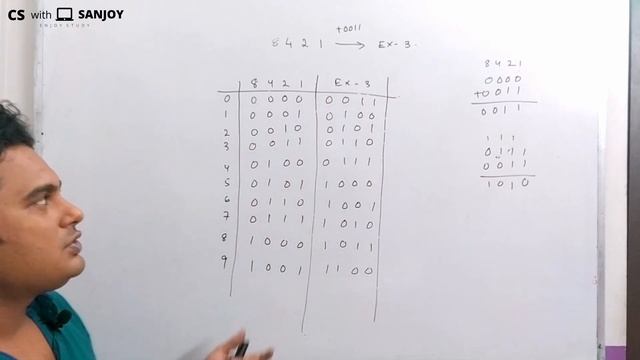 CS with SANJOY
ENJOY STUDY
+0011
8 4 2 1 → Ex-3.
8 4 2 1 Ex-3
0 0 0 0 0 0 0 1 1
1 0 0 0 1 0 1 0 0
2 0 0 1 0 0 1 0 1
3 0 0 1 1 0 1 1 0
4 0 1 0 0 0 1 1 1
5 0 1 0 1 1 0 0 0
6 0 1 1 0 1 0 0 1
7 0 1 1 1 1 0 1 0
8 1 0 0 0 1 0 1 1
9 1 0 0 1 1 1 0 0
8 4 2 1
0 0 0 0
+0 0 1 1
0 0 1 1
1 1 1
0 1 1 1
0 0 1 1
1 0 1 0